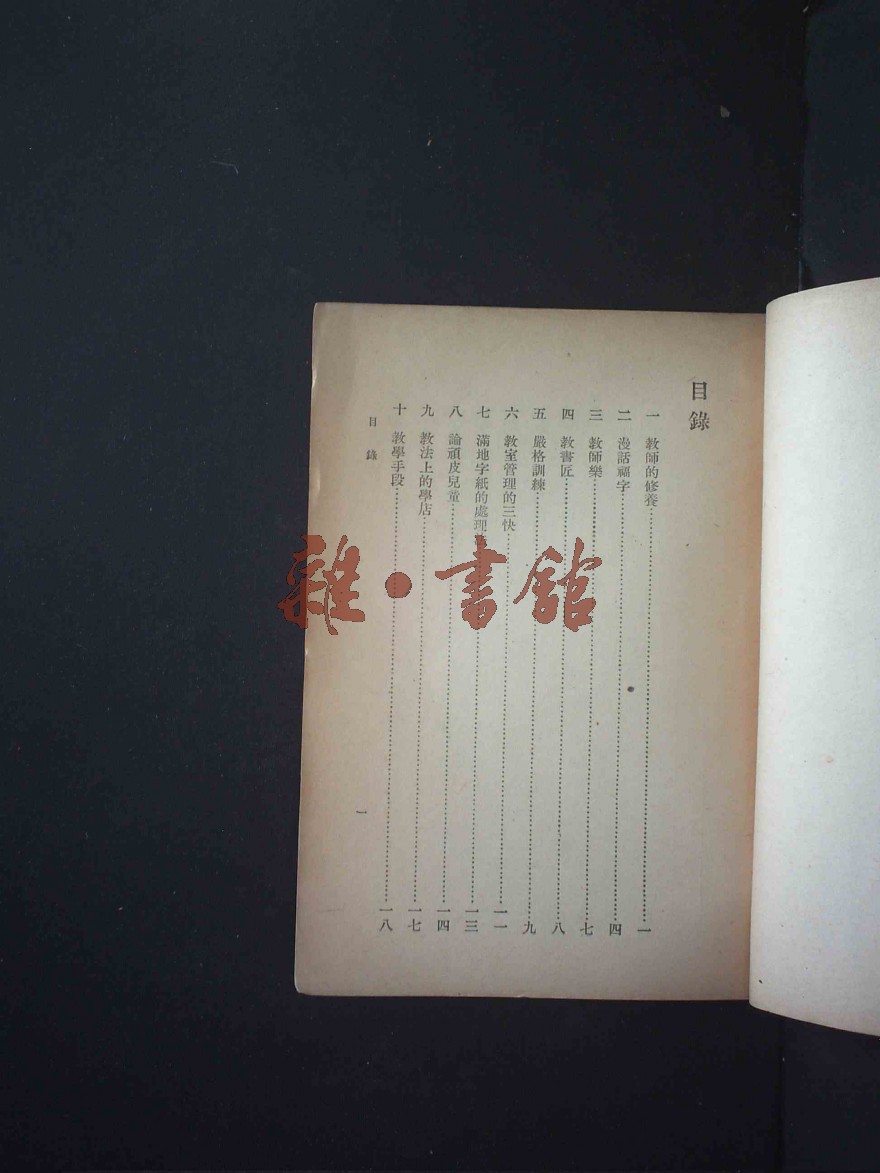 目錄
一 教師的修養⋯⋯一
二 漫話福字⋯⋯四
三 教師樂⋯⋯七
四 教書匠⋯⋯八
五 嚴格訓練⋯⋯九
六 教室管理的三快⋯⋯一一
七 滿地字紙的處理⋯⋯一三
八 論頑皮兒童⋯⋯一四
九 教法上的學店⋯⋯一七
十 教學手段⋯⋯一八
目錄
一
雜·書館